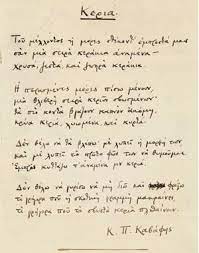 Κεριά.
Του μέλλοντος η μέρες στέκοντ' εμπροστά μας
σαν μια σειρά κεράκια αναμένα —
χρυσά, ζεστά, και ζωηρά κεράκια.
Η περασμένες μέρες πίσω μένουν,
μια θλιβερή σειρά κεριών σβυσμένων·
τα πιο κοντά βγάζουν καπνόν ακόμη,
κρύα κεριά, λυωμένα, και κυρτά.
Δεν θέλω να τα βλέπω· με λυπεί η μορφή των,
και με λυπεί το πρώτο φως των να θυμούμαι.
Εμπρός κυττάζω τ' αναμένα μου κεριά.
Δεν θέλω να γυρίσω να μη διω και φρίξω
τι γρήγορα που η σκοτεινή γραμμή μακραίνει,
τι γρήγορα που τα σβυστά κεριά πληθαίνουν.
Κ. Π. Καβάφης